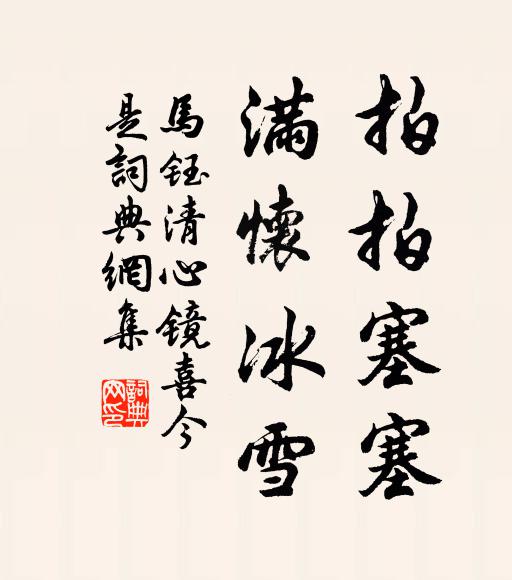 拍拍塞塞
滿懷冰雪
馬鈺清心鏡喜今
是詞典網集
詞典網印